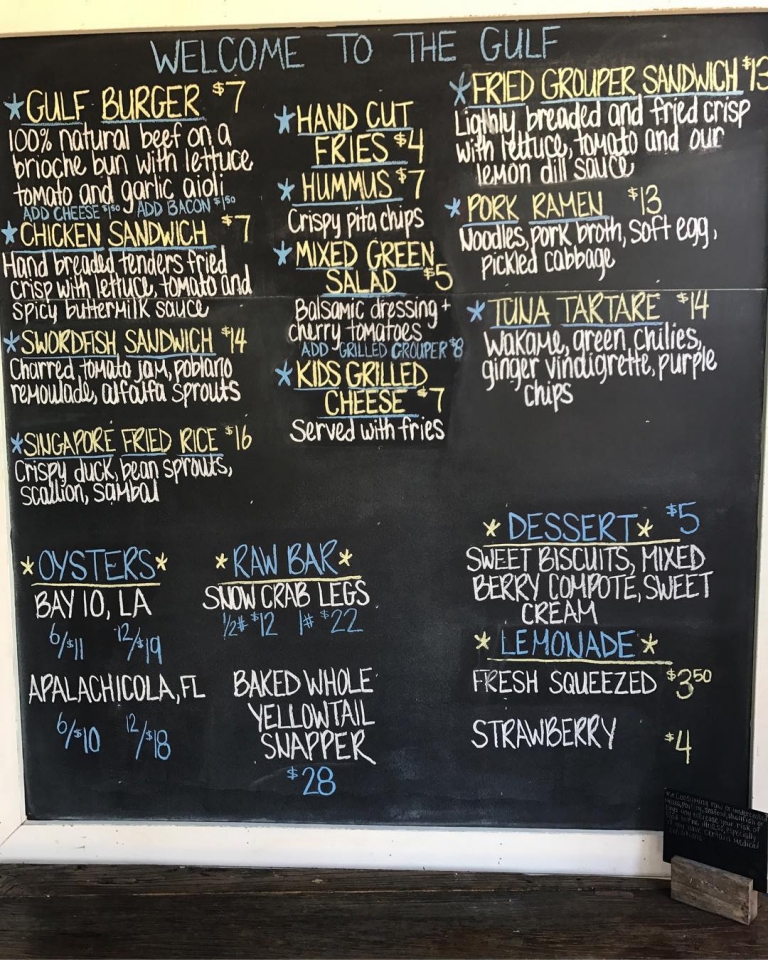 WELCOME TO THE GULF
*GULF BURGER $7
100% natural beef on a
brioche bun with lettuce
tomato and garlic aioli
ADD CHEESE $1.50 ADD BACON $1.50
*CHICKEN SANDWICH $7
Hand breaded tenders fried
crisp with lettuce, tomato and
spicy buttermilk sauce
*SWORDFISH SANDWICH $14
Charred tomato jam, poblano
remoulade, alfalfa sprouts
*SINGAPORE FRIED RICE $16
Crispy duck, bean sprouts,
scallion, sambal
*HAND CUT
FRIES $4
*HUMMUS $7
Crispy pita chips
*MIXED GREEN
SALAD $5
Balsamic dressing +
cherry tomatoes
ADD GRILLED GROUPER $8
*KIDS GRILLED
CHEESE $7
Served with fries
*FRIED GROUPER SANDWICH $13
Lighly breaded and fried crisp
with lettuce, tomato and our
lemon dill sauce
*PORK RAMEN $13
Noodles, pork broth, soft egg,
pickled cabbage
*TUNA TARTARE $14
Wakame, green chilies,
ginger vindigrette, purple
chips
*OYSTERS*
BAY 10, LA
6/$11 12/$19
APALACHICOLA, FL
6/$10 12/$18
*RAW BAR*
SNOW CRAB LEGS
1/2# $12 1# $22
BAKED WHOLE
YELLOWTAIL
SNAPPER
$28
*DESSERT* $5
SWEET BISCUITS, MIXED
BERRY COMPOTE, SWEET
CREAM
*LEMONADE*
FRESH SQUEEZED $3.50
STRAWBERRY $4